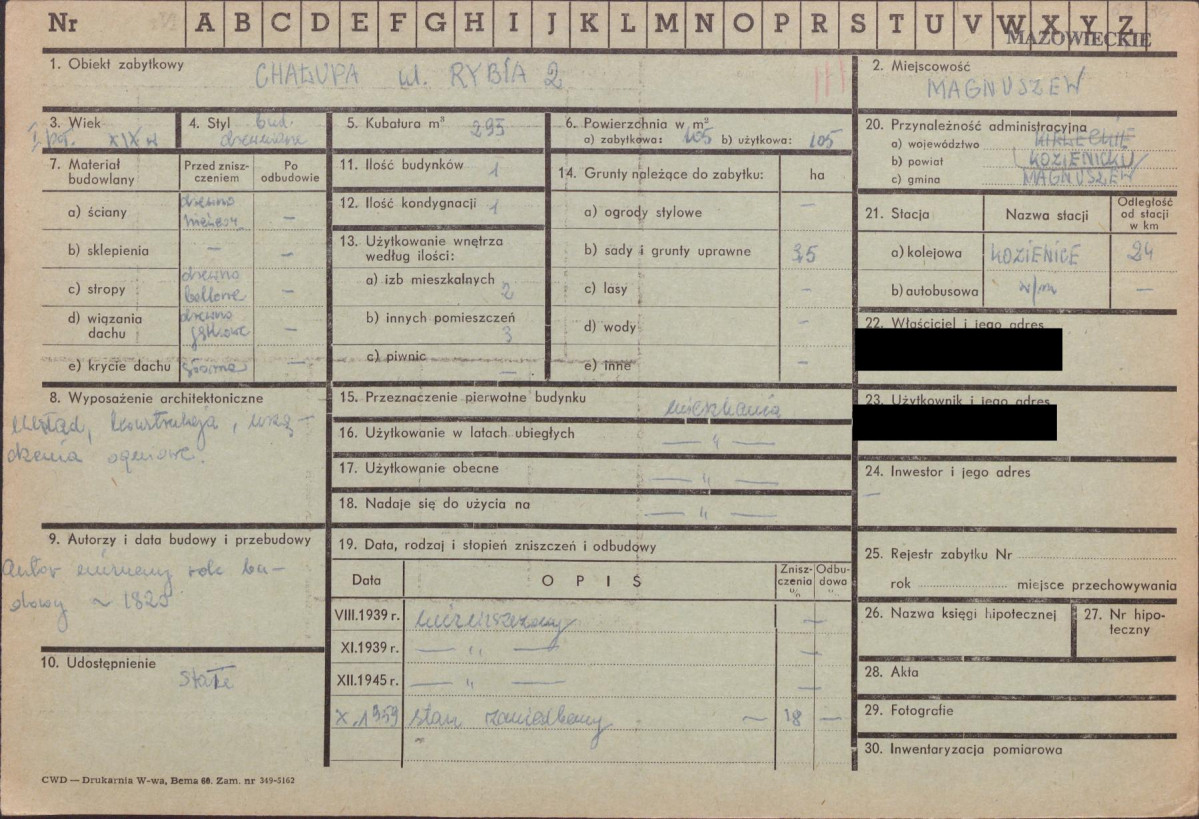 Nr A B C D E F G H I J K L M N O P R S T U V W X Y Z
MAZOWIECKIE
1. Obiekt zabytkowy
CHAŁUPA ul. RYBIA 2
2. Miejscowość
MAGNUSZEW
3. Wiek
I poł. XIX w
4. Styl bud.
drewniane
5. Kubatura m³ 295
6. Powierzchnia w m²
a) zabytkowa: 105 b) użytkowa: 105
20. Przynależność administracyjna
a) województwo KIELECKIE
b) powiat KOZIENICKI
c) gmina MAGNUSZEW
7. Materiał budowlany
Przed zniszczeniem
Po odbudowie
a) ściany drewno –
b) sklepienia – –
c) stropy drewno belkowe –
d) wiązania dachu drewno –
e) krycie dachu słoma –
11. Ilość budynków 1
12. Ilość kondygnacji 1
13. Użytkowanie wnętrza
według ilości:
a) izb mieszkalnych 2
b) innych pomieszczeń 3
c) piwnic –
14. Grunty należące do zabytku: ha
a) ogrody stylowe –
b) sady i grunty uprawne 35
c) lasy –
d) wody –
e) inne –
21. Stacja
Nazwa stacji
Odległość
od stacji
w km
a) kolejowa KOZIENICE 24
b) autobusowa w/m –
22. Właściciel i jego adres
23. Użytkownik i jego adres
24. Inwestor i jego adres
–
8. Wyposażenie architektoniczne
układ, konstrukcja, urzą-
dzenia ogniowe.
15. Przeznaczenie pierwotne budynku mieszkania
16. Użytkowanie w latach ubiegłych — „ —
17. Użytkowanie obecne — „ —
18. Nadaje się do użycia na — „ —
9. Autorzy i data budowy i przebudowy
Autor nieznany rok bu-
dowy ~ 1820
10. Udostępnienie
stałe
19. Data, rodzaj i stopień zniszczeń i odbudowy
Data
OPIS
Znisz-
czenia
%
Odbu-
dowa %
VIII.1939 r. niezniszczony –
XI.1939 r. — „ — –
XII.1945 r. — „ — –
X.1959 stan zaniedbany ~ 18 –
25. Rejestr zabytku Nr
rok miejsce przechowywania
26. Nazwa księgi hipotecznej
27. Nr hipo-
teczny
28. Akta
29. Fotografie
30. Inwentaryzacja pomiarowa
CWD — Drukarnia W-wa, Bema 60. Zam. nr 349-5162